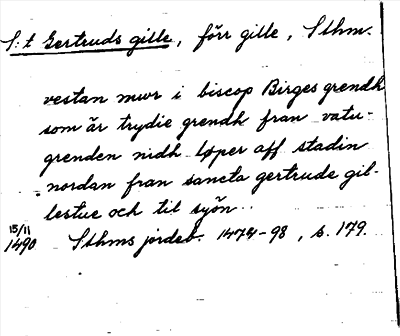 S:t Gertruds gille, förr gille, Sthm.
vestan mwr i biscop Birges grendh
som är trydie grendh fran vatu-
grenden nidh løper aff stadin
nordan fran sancta gertrude gil-
lestue och til syön.
15/11
1490 Sthms jordeb. 1474-98, s. 179.